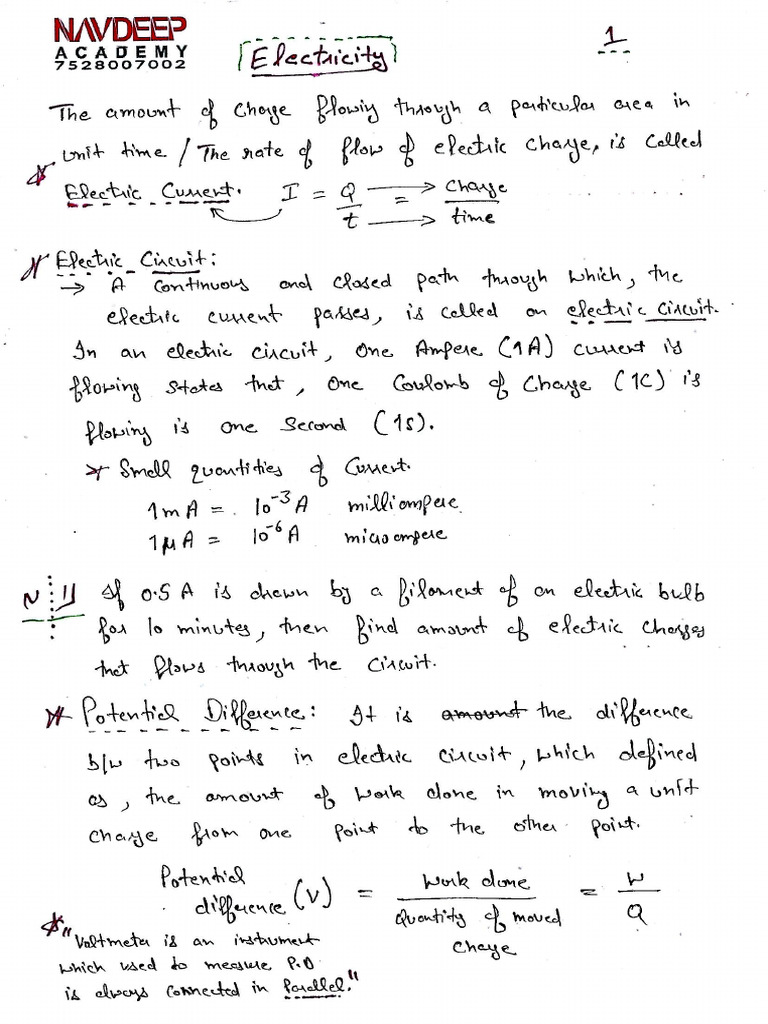 NAVDEEP
ACADEMY
7528007002
Electricity
1
The amount of charge flowing through a particular area in
unit time / The rate of flow of electric charge, is called
Electric Current. I = Q/t = charge/time
Electric Circuit:
→ A continuous and closed path through which, the
electric current passes, is called an electric circuit.
In an electric circuit, One Ampere (1A) current is
flowing states that, one Coulomb of Charge (1C) is
flowing is one second (1s).
Small quantities of Current.
1mA = 10⁻³A milliampere
1μA = 10⁻⁶A microampere
N 1) If 0.5 A is drawn by a filament of an electric bulb
for 10 minutes, then find amount of electric charges
that flows through the circuit.
Potential Difference: It is amount the difference
b/w two points in electric circuit, which defined
as, the amount of work done in moving a unit
charge from one point to the other point.
Potential difference (V) = Work done / Quantity of moved charge = W/Q
"Voltmeter is an instrument
which used to measure P.D
is always connected in Parallel."